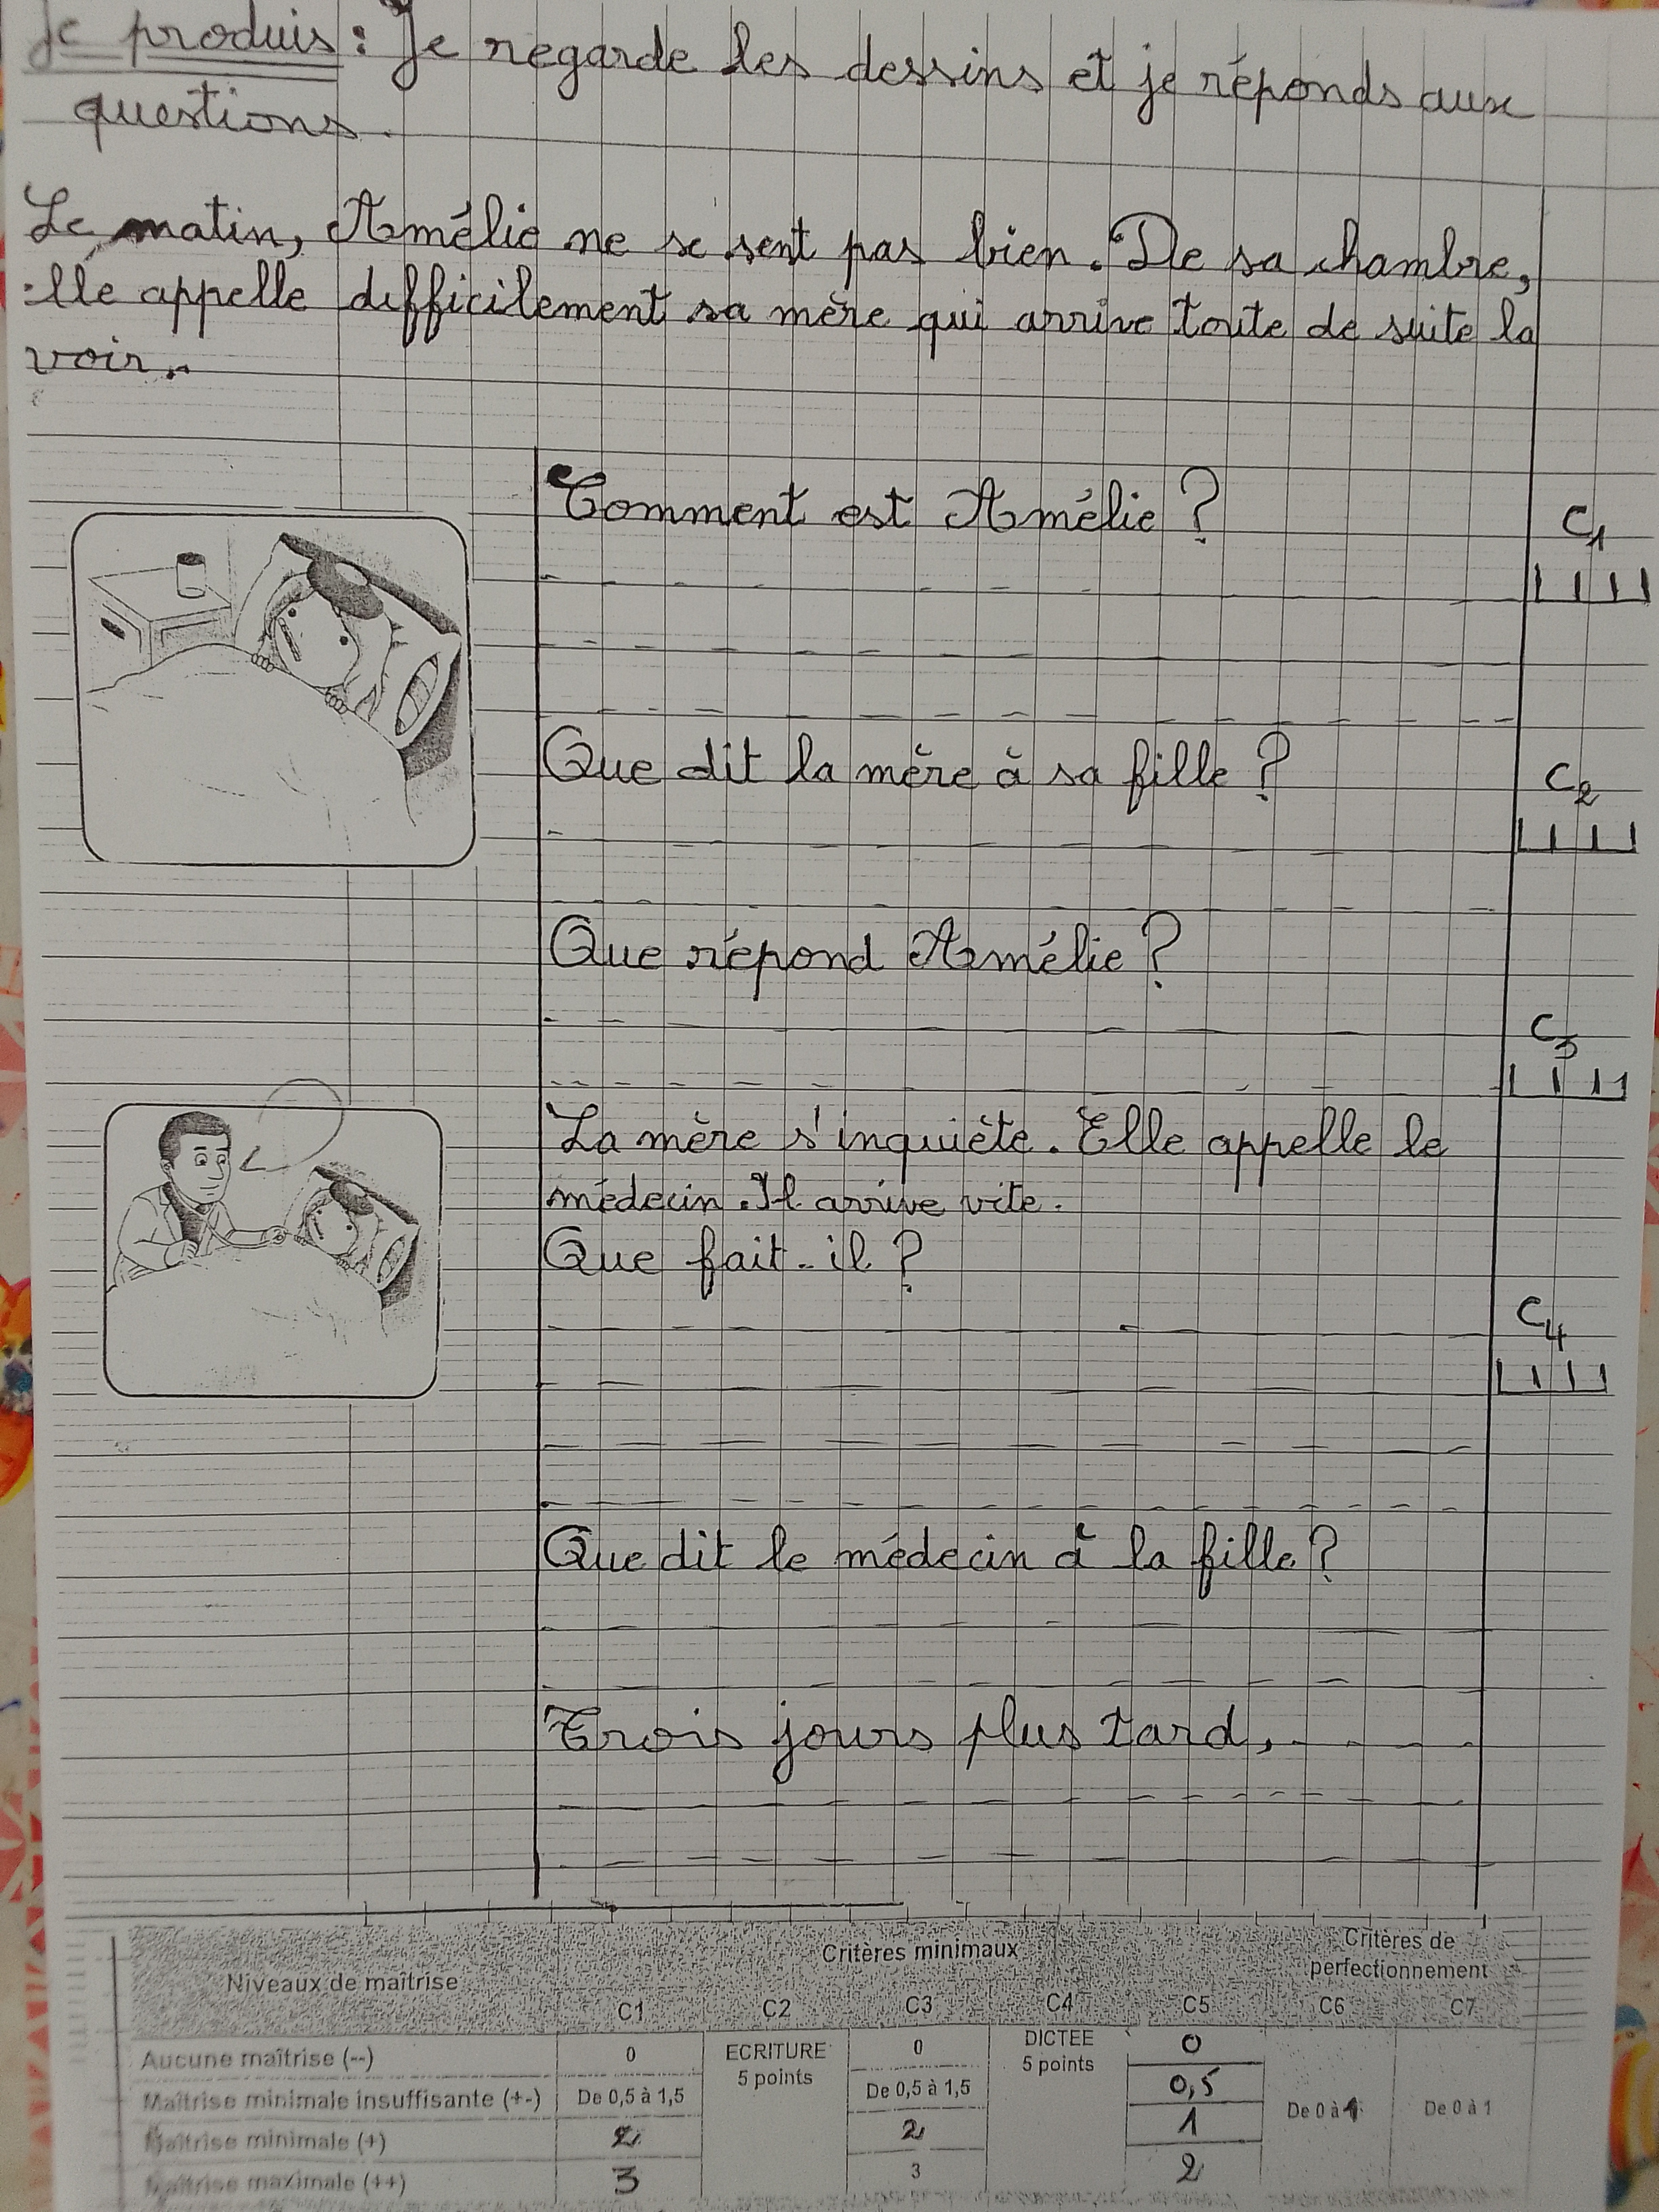 Je produis : Je regarde les dessins et je réponds aux
questions.
Le matin, Amélie ne se sent pas bien. De sa chambre,
elle appelle difficilement sa mère qui arrive toute de suite la
voir.
Comment est Amélie ?
C1
Que dit la mère à sa fille ?
C2
Que répond Amélie ?
C3
La mère s'inquiète. Elle appelle le
médecin. Il arrive vite.
Que fait-il ?
C4
Que dit le médecin à la fille ?
Trois jours plus tard,
Niveaux de maîtrise
Critères minimaux
Critères de
perfectionnement
C1 C2 C3 C4 C5 C6 C7
Aucune maîtrise (--) 0 ECRITURE 5 points 0 DICTEE 5 points 0
Maîtrise minimale insuffisante (+-) De 0,5 à 1,5 De 0,5 à 1,5 0,5 De 0 à 1 De 0 à 1
Maîtrise minimale (+) 2 2 1
Maîtrise maximale (++) 3 3 2